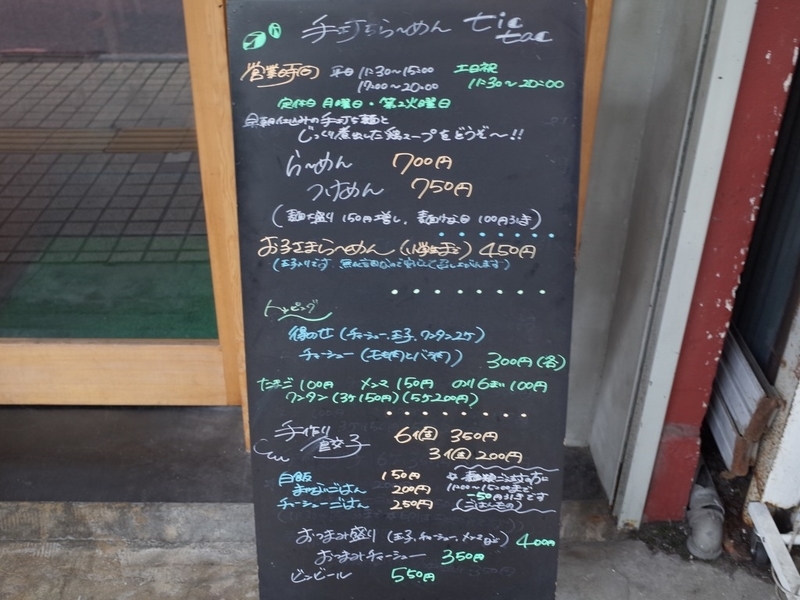 手打ちらーめん tic tac
営業時間 平日 11:30～15:00 土日祝
17:00～20:00 11:30～20:00
定休日 月曜日・第2火曜日
早朝仕込みの手打ち麺と
じっくり煮出した鶏スープをどうぞ～!!
らーめん 700円
つけめん 750円
(麺大盛り 150円増し、麺少なめ 100円引き)
お子さまらーめん (小学生まで) 450円
トッピング
得のせ (チャーシュー、玉子、ワンタン2ケ)
チャーシュー (モモ肉とバラ肉) 300円(各)
たまご 100円 メンマ 150円 のり6まい 100円
ワンタン (3ケ 150円) (5ケ 200円)
手作り餃子 6個 350円
3個 200円
白飯 150円 麺類ご注文の方に
まかないごはん 200円 11:00～15:00まで
チャーシューごはん 250円 -50円引きです
(ごはんもの)
おつまみ盛り (玉子、チャーシュー、メンマなど) 400円
おつまみチャーシュー 350円
ビンビール 550円